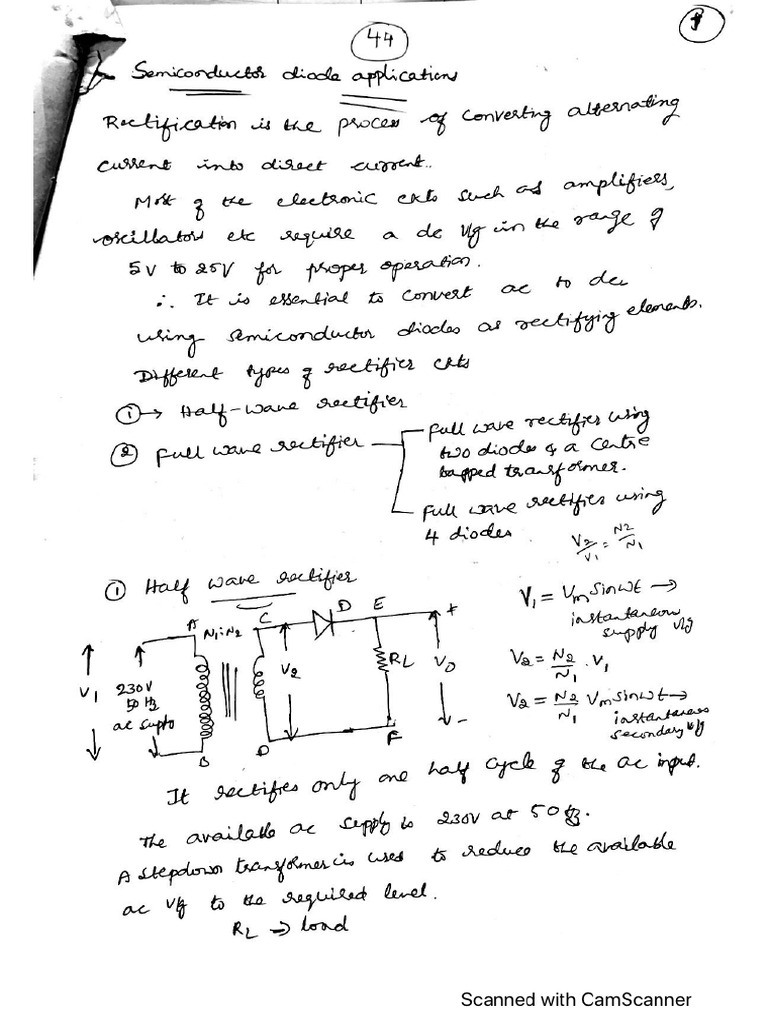 44
Semiconductor diode applications
Rectification is the process of converting alternating
current into direct current.
Most of the electronic ckts such as amplifiers,
oscillators etc require a dc Vg in the range of
5V to 25V for proper operation.
∴ It is essential to convert ac to dc
using semiconductor diodes as rectifying elements.
Different types of rectifier ckts
① → Half-wave rectifier
② Full wave rectifier
Full wave rectifier using
two diodes & a centre
tapped transformer.
Full wave rectifier using
4 diodes.
V2/V1 = N2/N1
① Half wave rectifier
A N1:N2 C D E +
V1
230V
50 Hz
ac supply
V2
RL
VO
B D F -
V1 = Vm sinωt →
instantaneous
supply Vg
V2 = N2/N1 . V1
V2 = N2/N1 Vm sinωt →
instantaneous
secondary Vg
It rectifies only one half cycle of the ac input.
The available ac supply is 230V at 50 Hz.
A stepdown transformer is used to reduce the available
ac Vg to the required level.
RL → load
Scanned with CamScanner